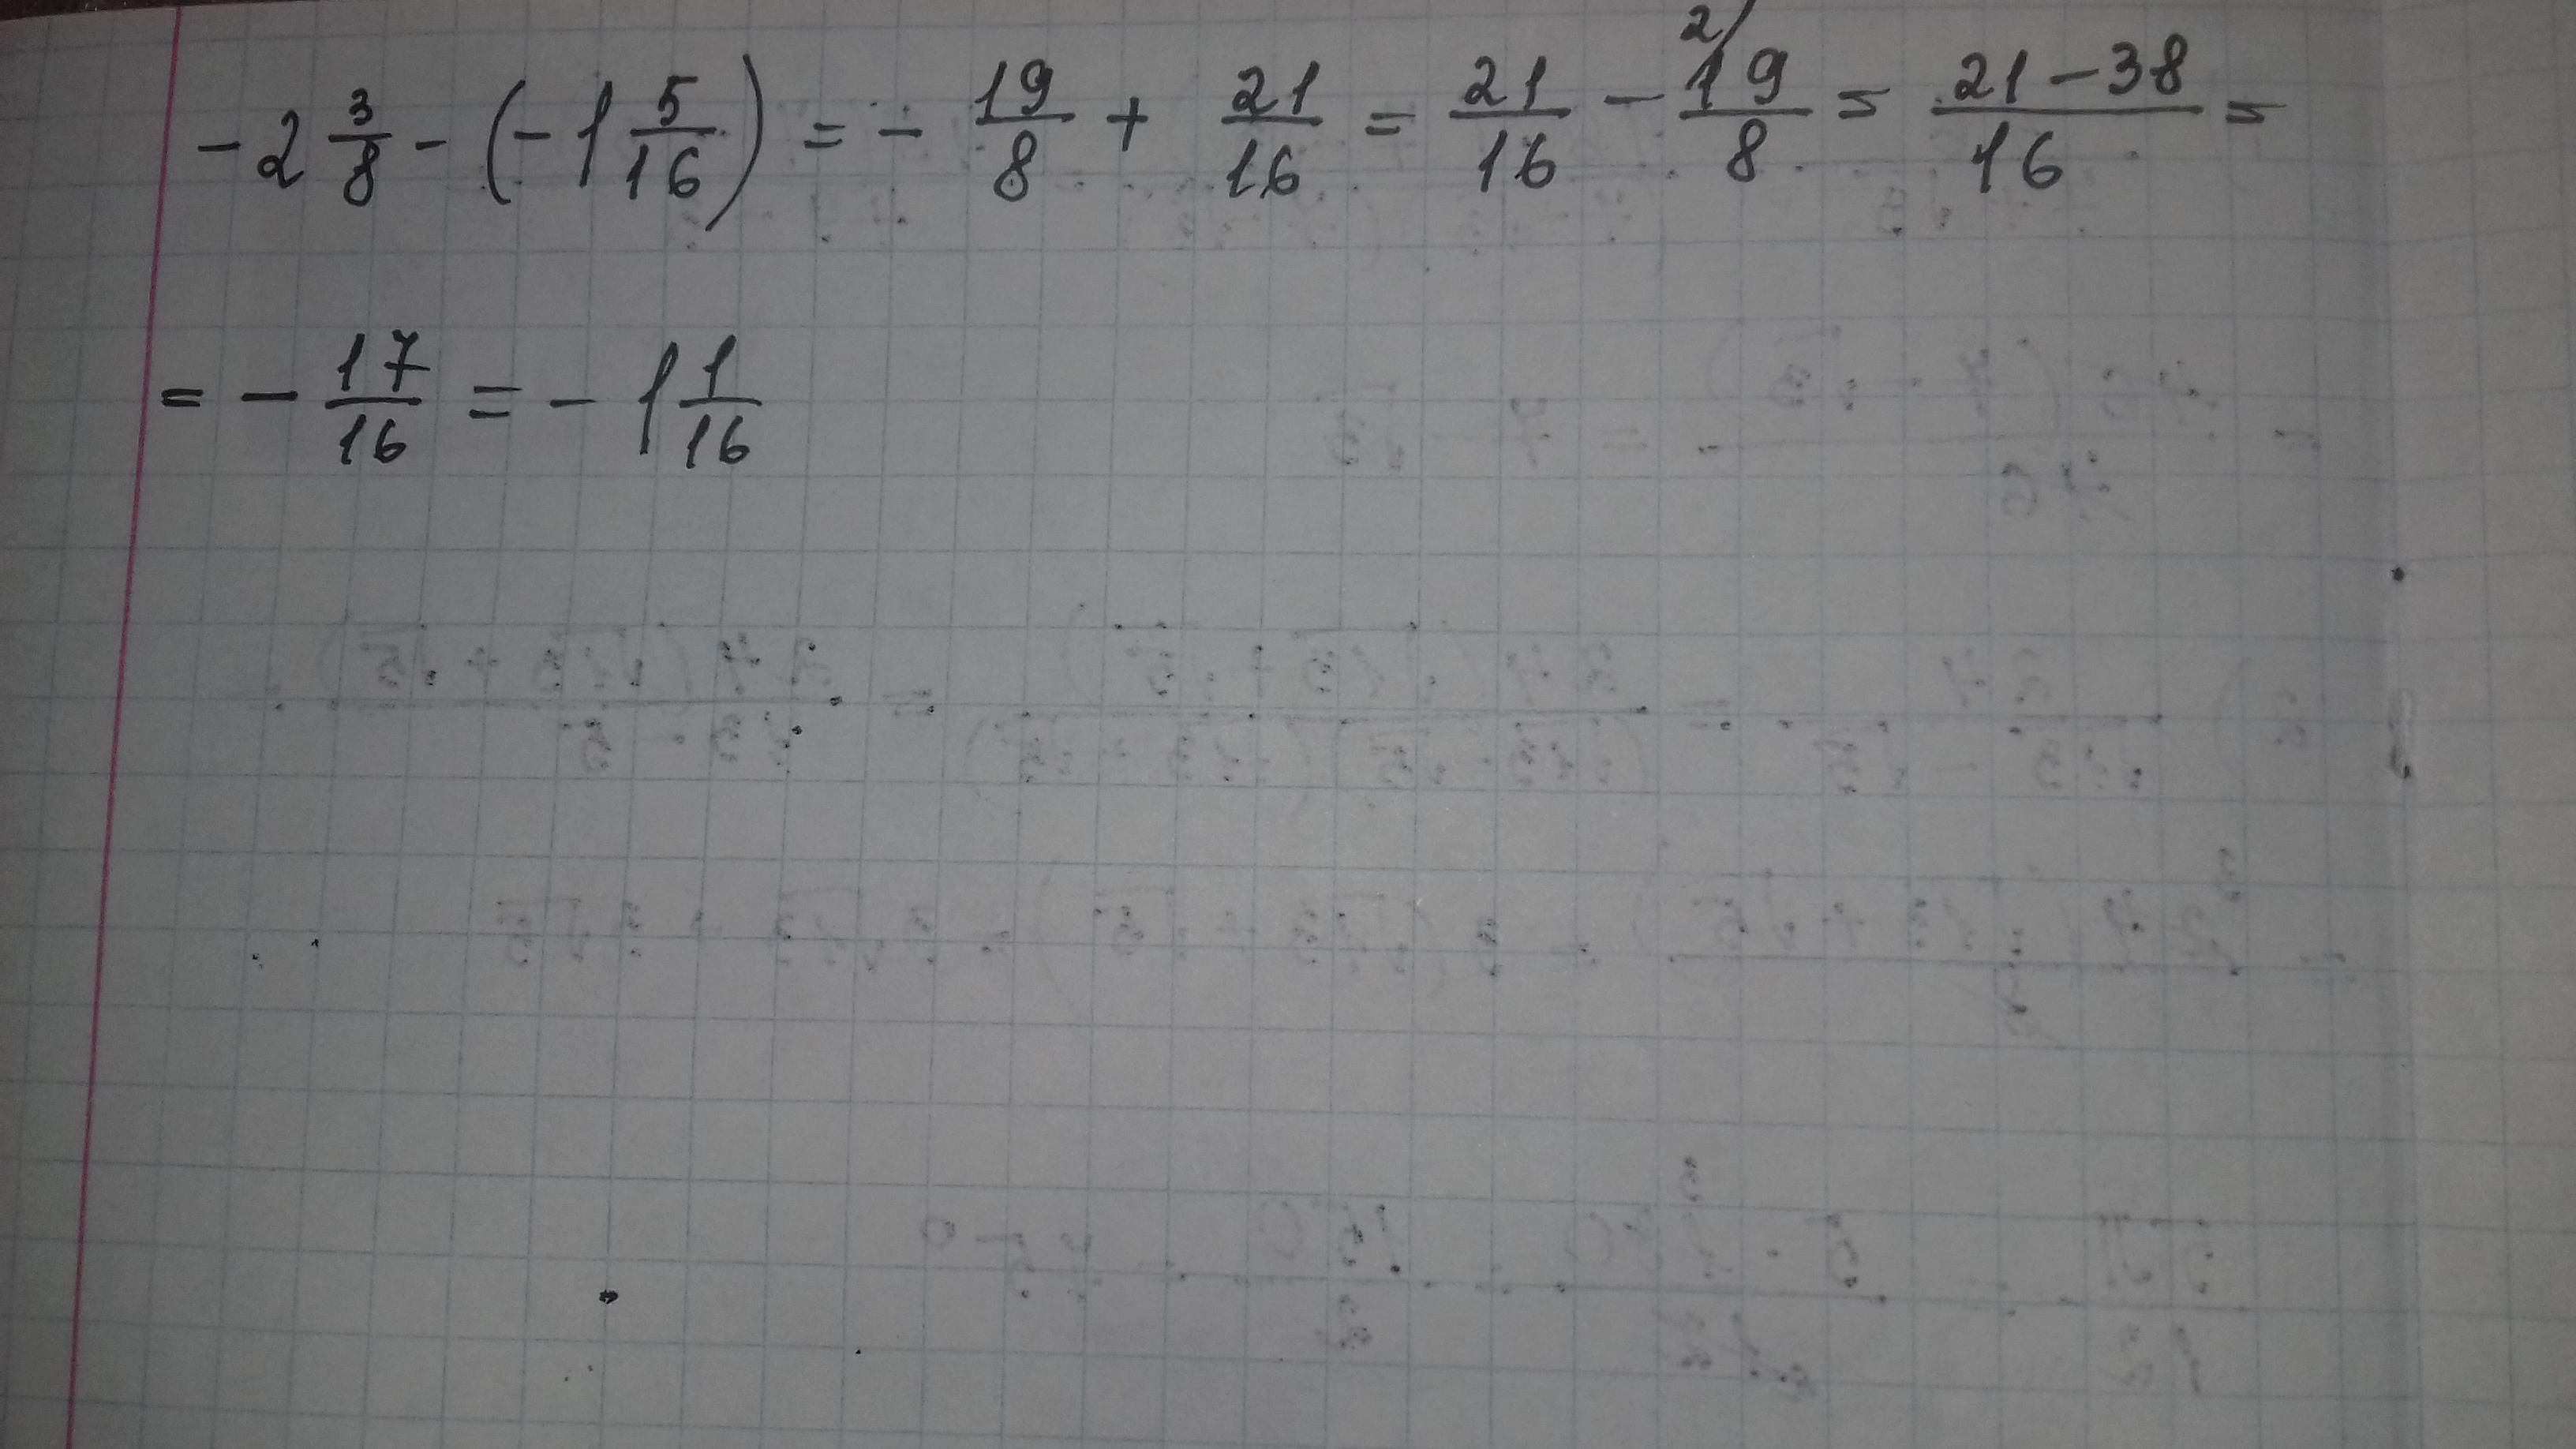 -2 3/8 - (-1 5/16) = - 19/8 + 21/16 = 21/16 - 2/ 19/8 = 21-38/16 =
= - 17/16 = - 1 1/16